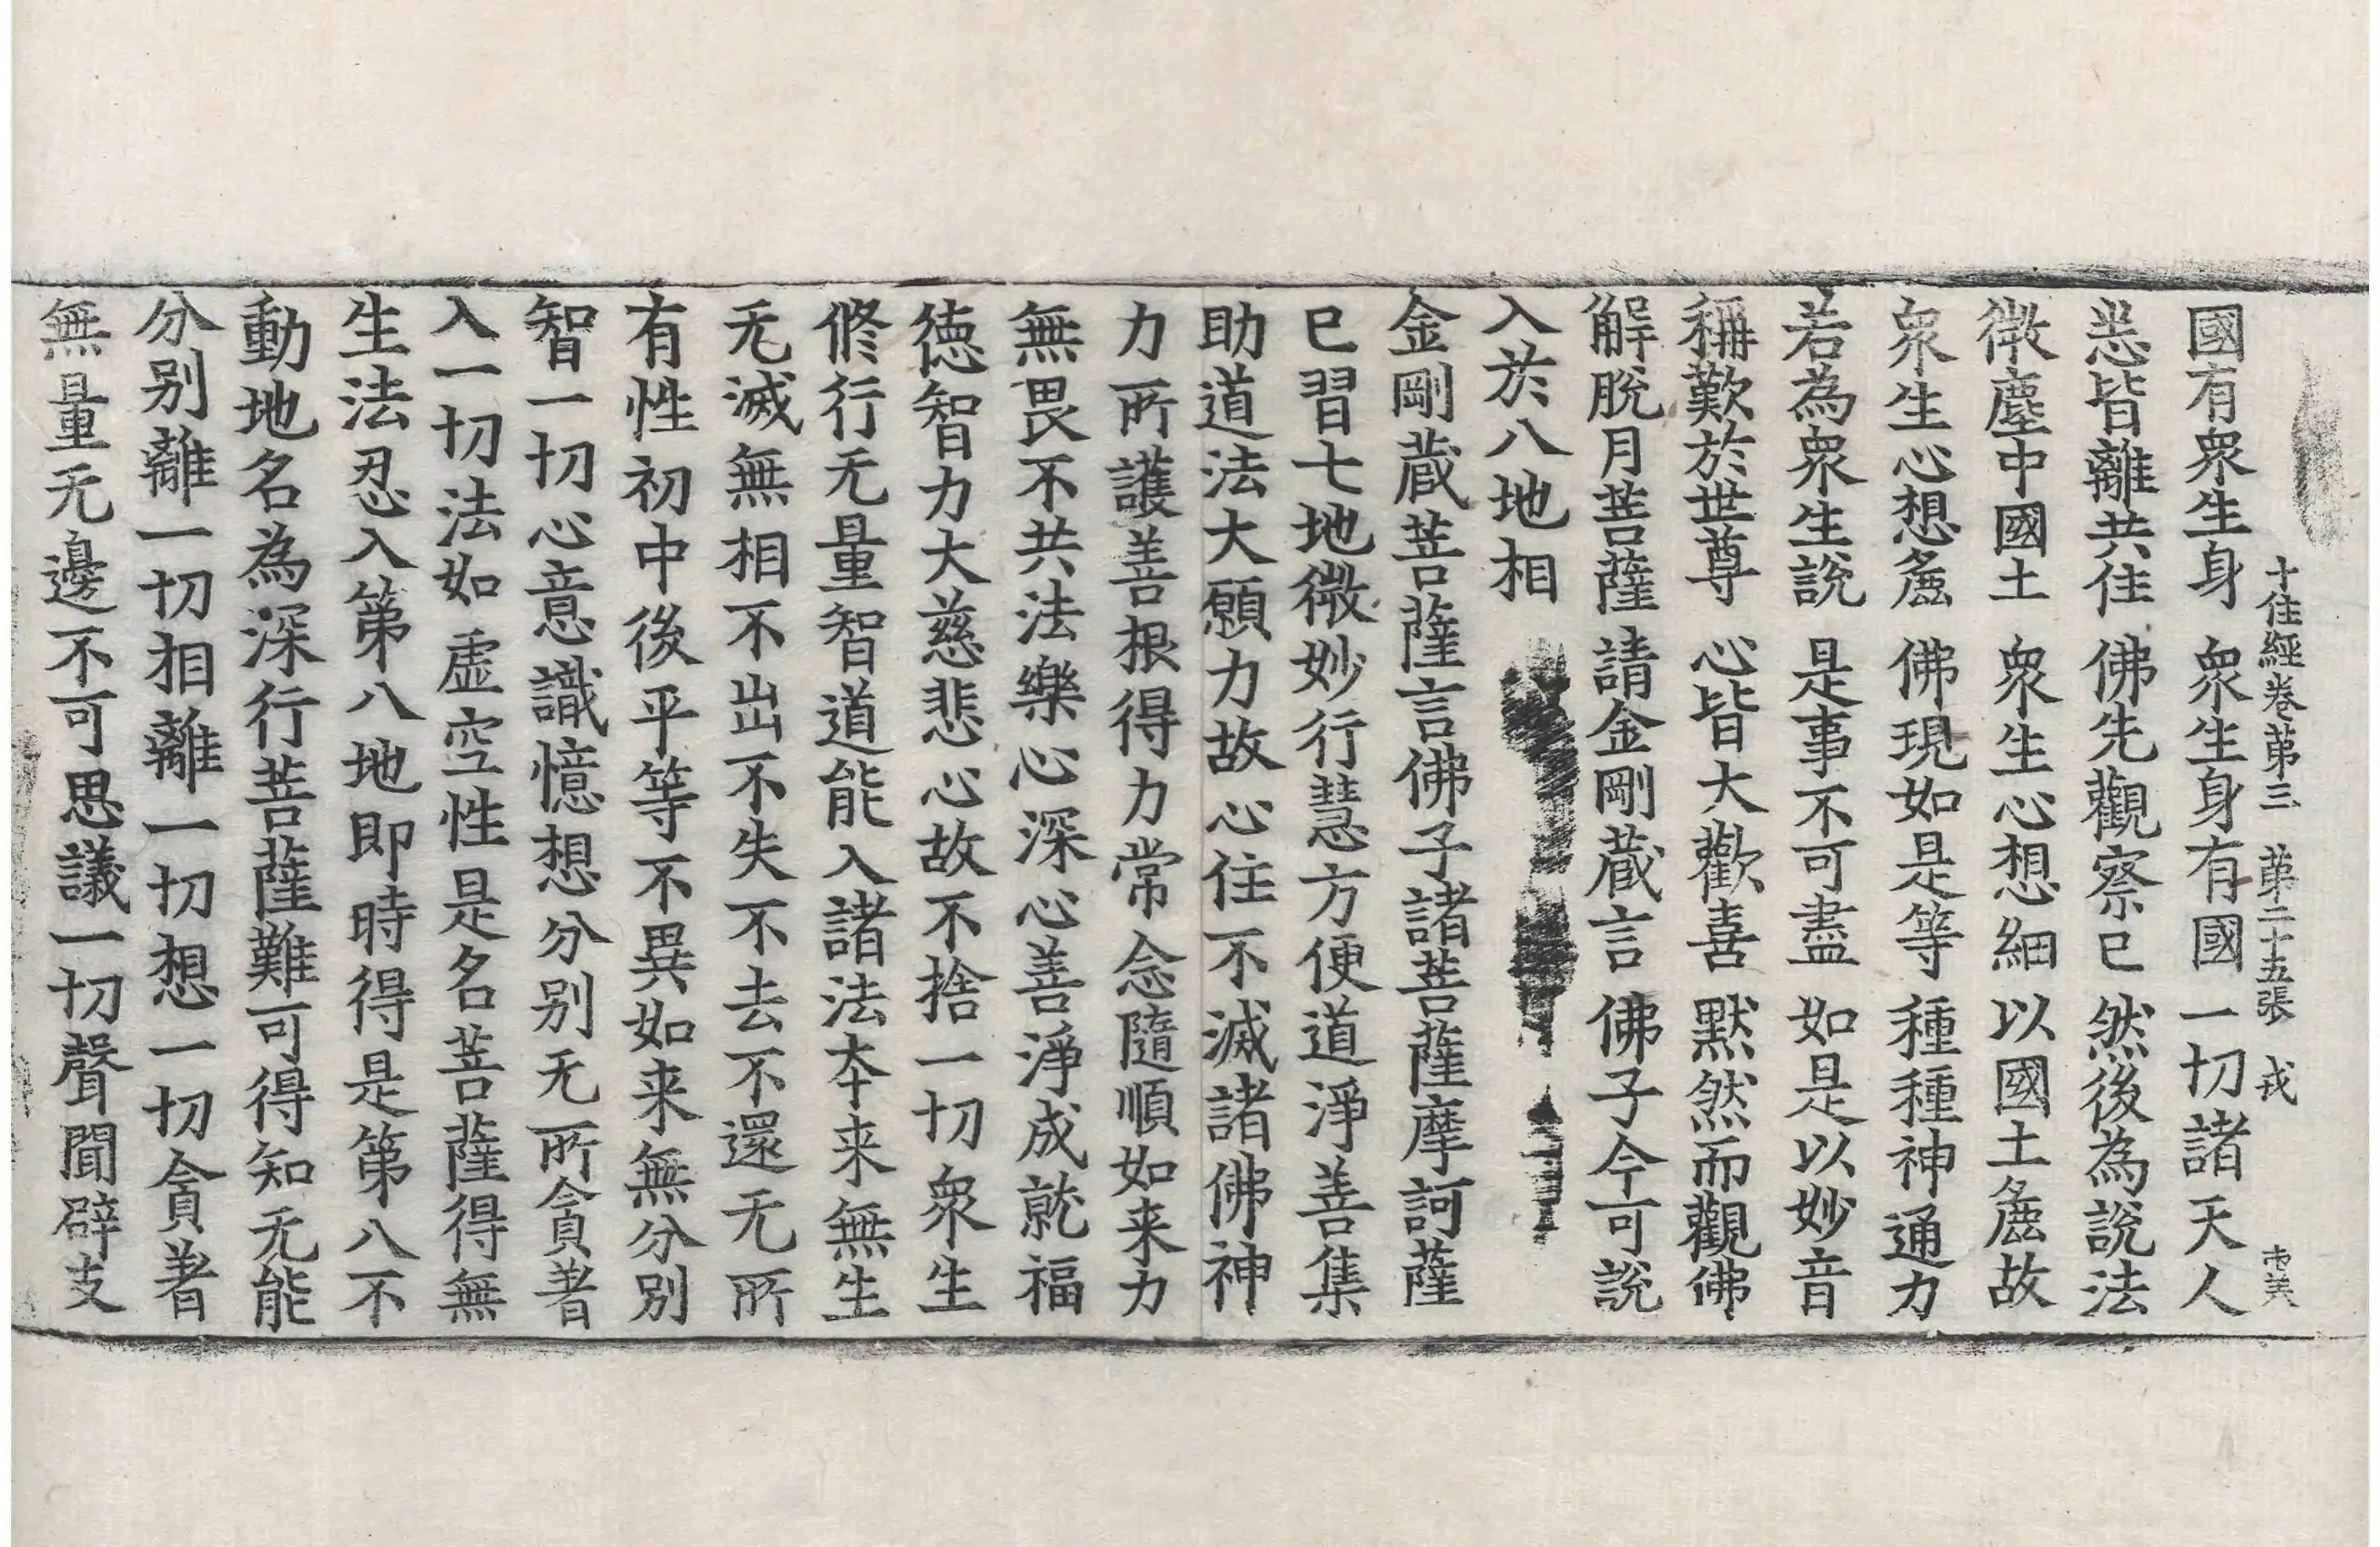 十住經卷第三　第二十五張　戎
國有衆生身　衆生身有國　一切諸天人
悉皆離共住　佛先觀察已　然後為說法
微塵中國土　衆生心想細　以國土麁故
衆生心想麁　佛現如是等　種種神通力
若為衆生說　是事不可盡　如是以妙音
稱歎於世尊　心皆大歡喜　默然而觀佛
解脫月菩薩　請金剛蔵言　佛子今可說
入於八地相
金剛蔵菩薩言佛子諸菩薩摩訶薩
已習七地微妙行慧方便道淨善集
助道法大願力故心住不滅諸佛神
力所護善根得力常念隨順如来力
無畏不共法樂心深心善淨成就福
德智力大慈悲心故不捨一切衆生
修行无量智道能入諸法夲来無生
无滅無相不出不失不去不還无所
有性初中後平等不異如来無分別
智一切心意識憶想分別无所貪著
入一切法如虛空性是名菩薩得無
生法忍入第八地即時得是第八不
動地名為深行菩薩難可得知无能
分別離一切相離一切想一切貪著
無量无邊不可思議一切聲聞辟支